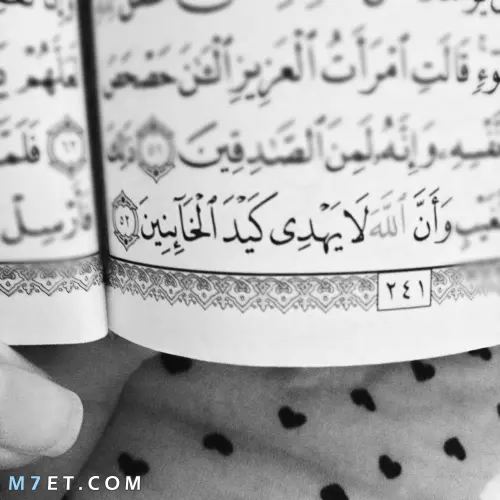 وٓءٖۚ قَالَتِ ٱمۡرَأَتُ ٱلۡعَزِيزِ ٱلۡـَٰٔنَ حَصۡحَصَ
نَّفۡسِهِۦ وَإِنَّهُۥ لَمِنَ ٱلصَّٰدِقِينَ ٥١ ذَٰلِكَ
غَيۡبِ وَأَنَّ ٱللَّهَ لَا يَهۡدِي كَيۡدَ ٱلۡخَآئِنِينَ ٥٢
٢٤١
فَلَمَّا
فَأَرۡسِلۡ
M7ET.COM